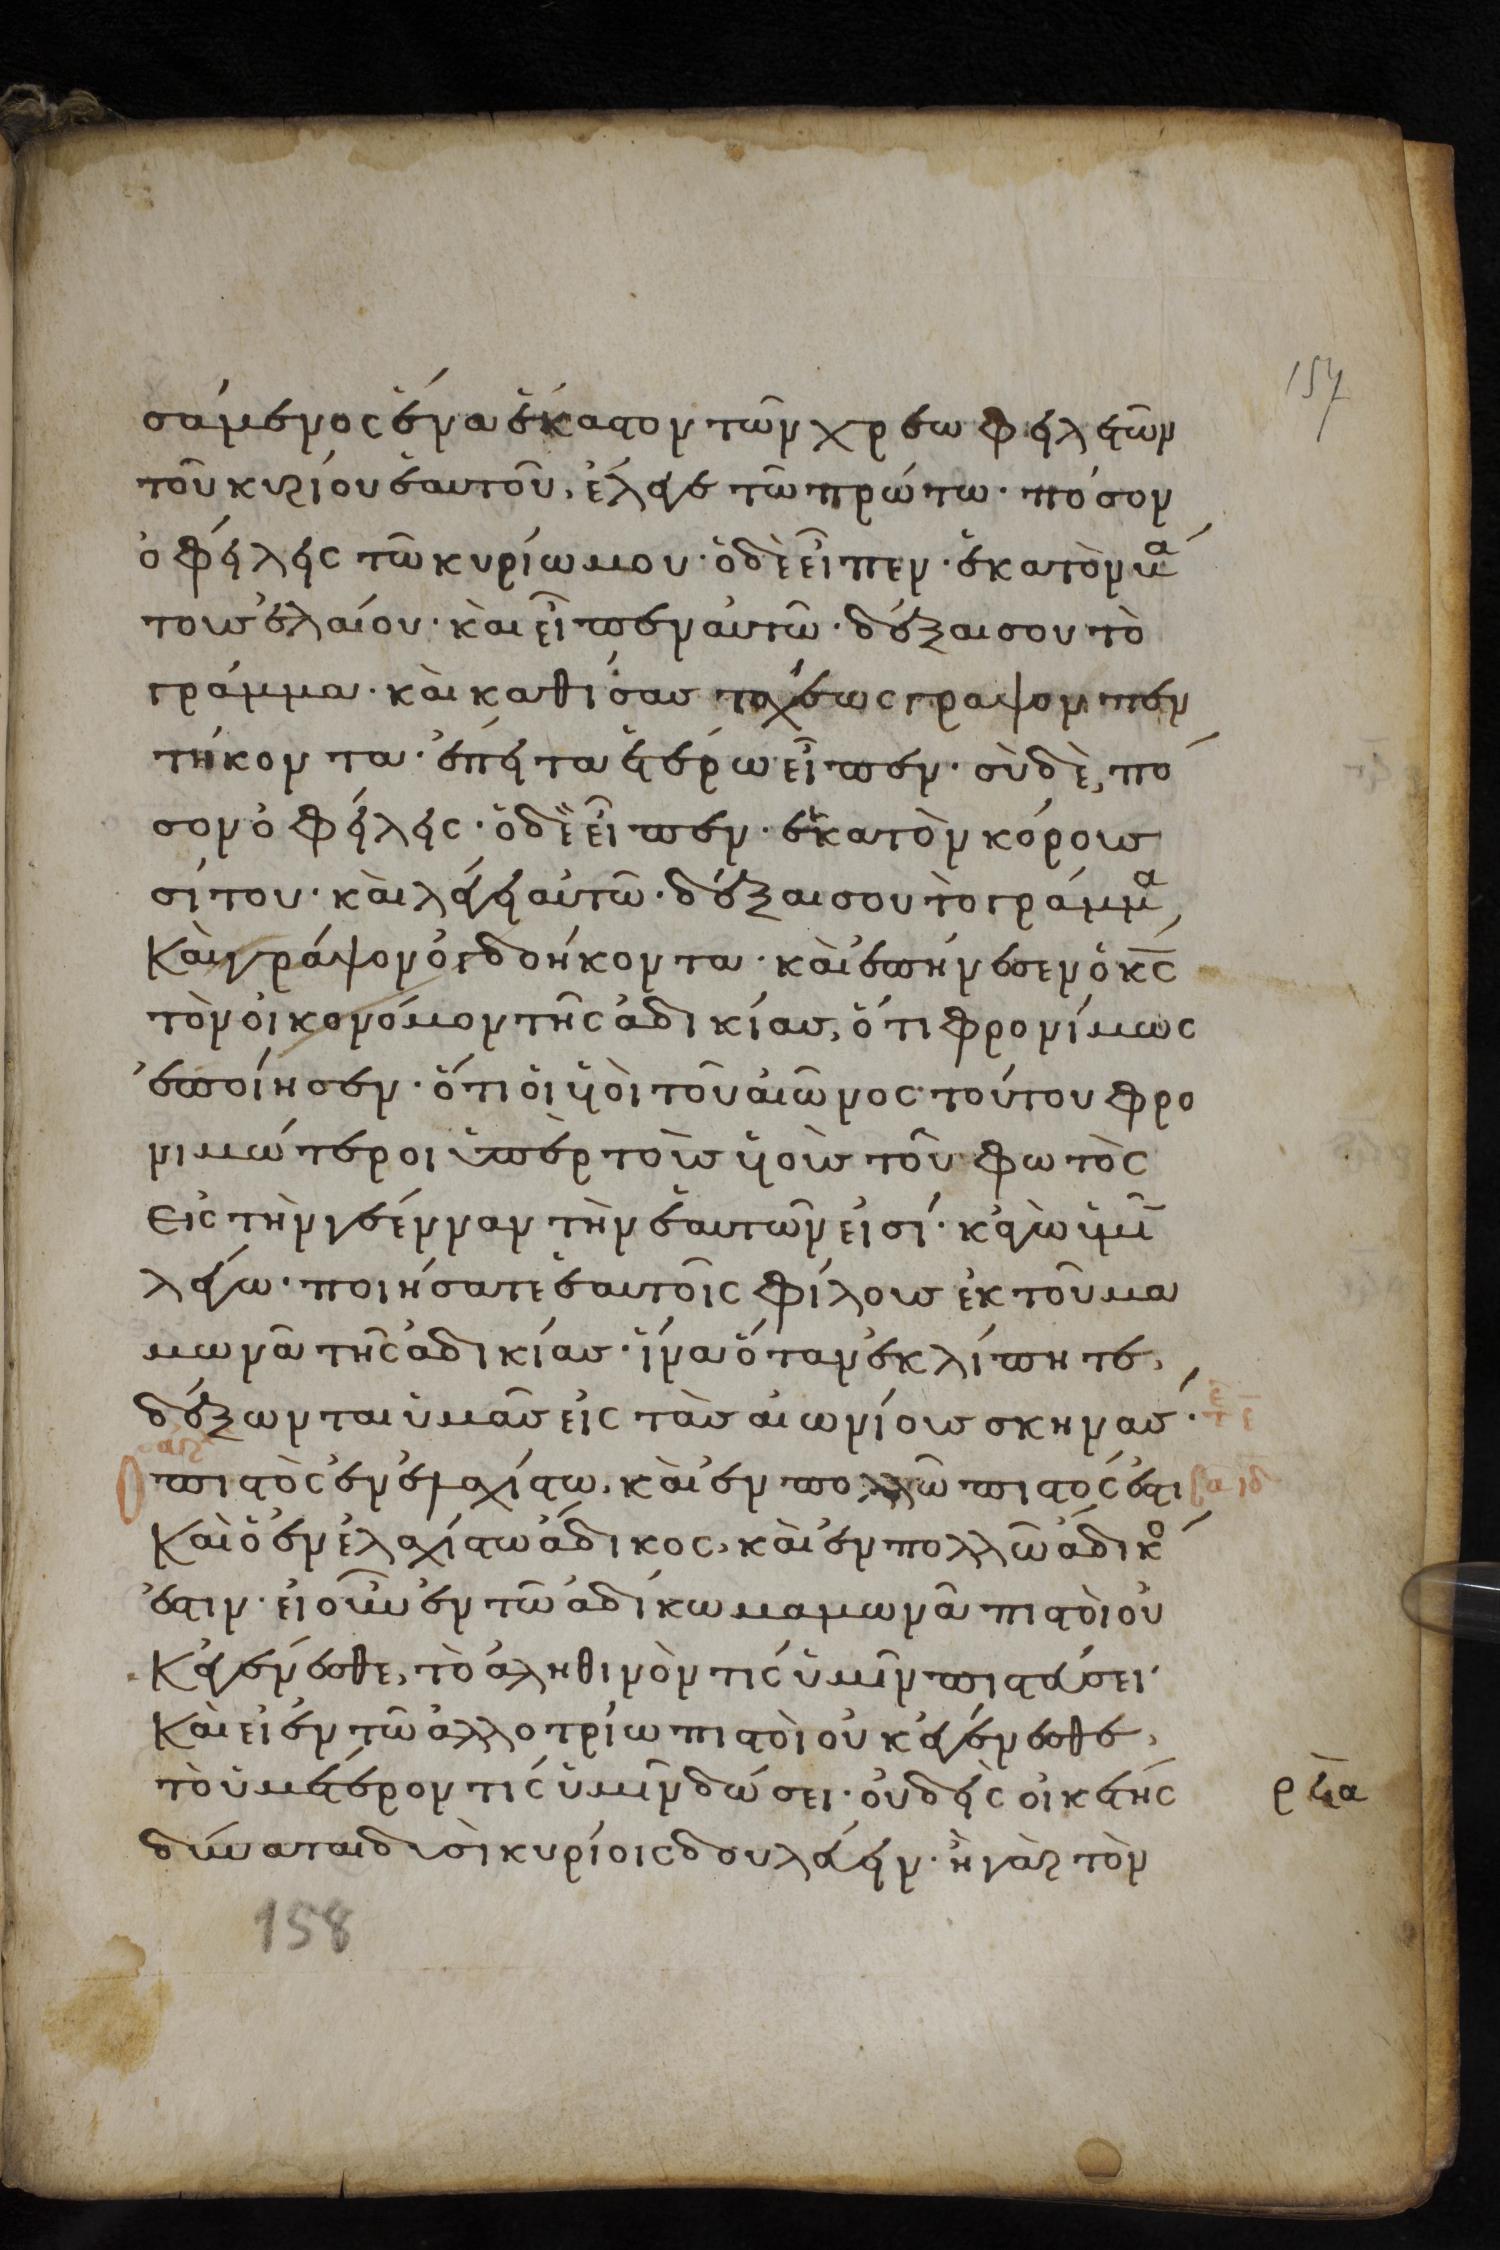 157
σάμενος ἕνα ἕκαστον τῶν χρεωφηλετῶν
τοῦ κυρίου ἑαυτοῦ, ἔλεγε τῶ πρώτω· πόσον
ὀφήλης τῶ κυρίω μου· ὁ δὲ εἶπεν· ἑκατὸν μά
τους ἐλαίου· καὶ εἶπεν αὐτῶ· δέξαι σου τὸ
γράμμα· καὶ καθίσας ταχέως γραψον πεν
τήκοντα· ἔπειτα ἑτέρω εἶπεν· σὺ δὲ, πό
σον ὀφήλης· ὁ δὲ εἶπεν· ἑκατὸν κόρους
σίτου· καὶ λέγει αὐτῶ· δέξαι σου τὸ γράμμα,
Καὶ γράψον ὀγδοήκοντα· καὶ ἐπήνεσεν ὁ κ̅ς̅
τὸν οἰκονόμον τῆς ἀδικίας, ὅτι φρονίμως
ἐποίησεν· ὅτι οἱ ὑοὶ τοῦ αἰῶνος τούτου φρο
νιμώτεροι ὑπὲρ τοὺς ὑοὺς τοῦ φωτὸς
Εἰς τὴν γένναν τὴν ἑαυτῶν εἰσί· κἀγὼ ὑμῖ
λέγω· ποιήσατε ἑαυτοῖς φίλους ἐκ τοῦ μα
μωνᾶ τῆς ἀδικίας· ἵνα ὅταν ἐκλίπητε,
δέξωνται ὑμᾶς εἰς τὰς αἰωνίους σκηνάς·
Ο πιστὸς ἐν ἐλαχίστω, καὶ ἐν πολλῶ πιστός ἐστι
Καὶ ὁ ἐν ἐλαχίστω ἄδικος, καὶ ἐν πολλῶ ἄδικό
ἐστιν· εἰ οὖν ἐν τῶ ἀδίκω μαμωνᾶ πιστοὶ οὐ
Κ ἐγένεσθε, τὸ ἀληθινὸν τίς ὑμῖν πιστεύσει·
Καὶ εἰ ἐν τῶ ἀλλοτρίω πιστοὶ οὐκ ἐγένεσθε,
τὸ ὑμέτερον τίς ὑμῖν δώσει· οὐδεὶς οἰκέτης
δύναται δυσὶ κυρίοις δουλεύειν· ἢ γὰρ τὸν
ρϟα
158